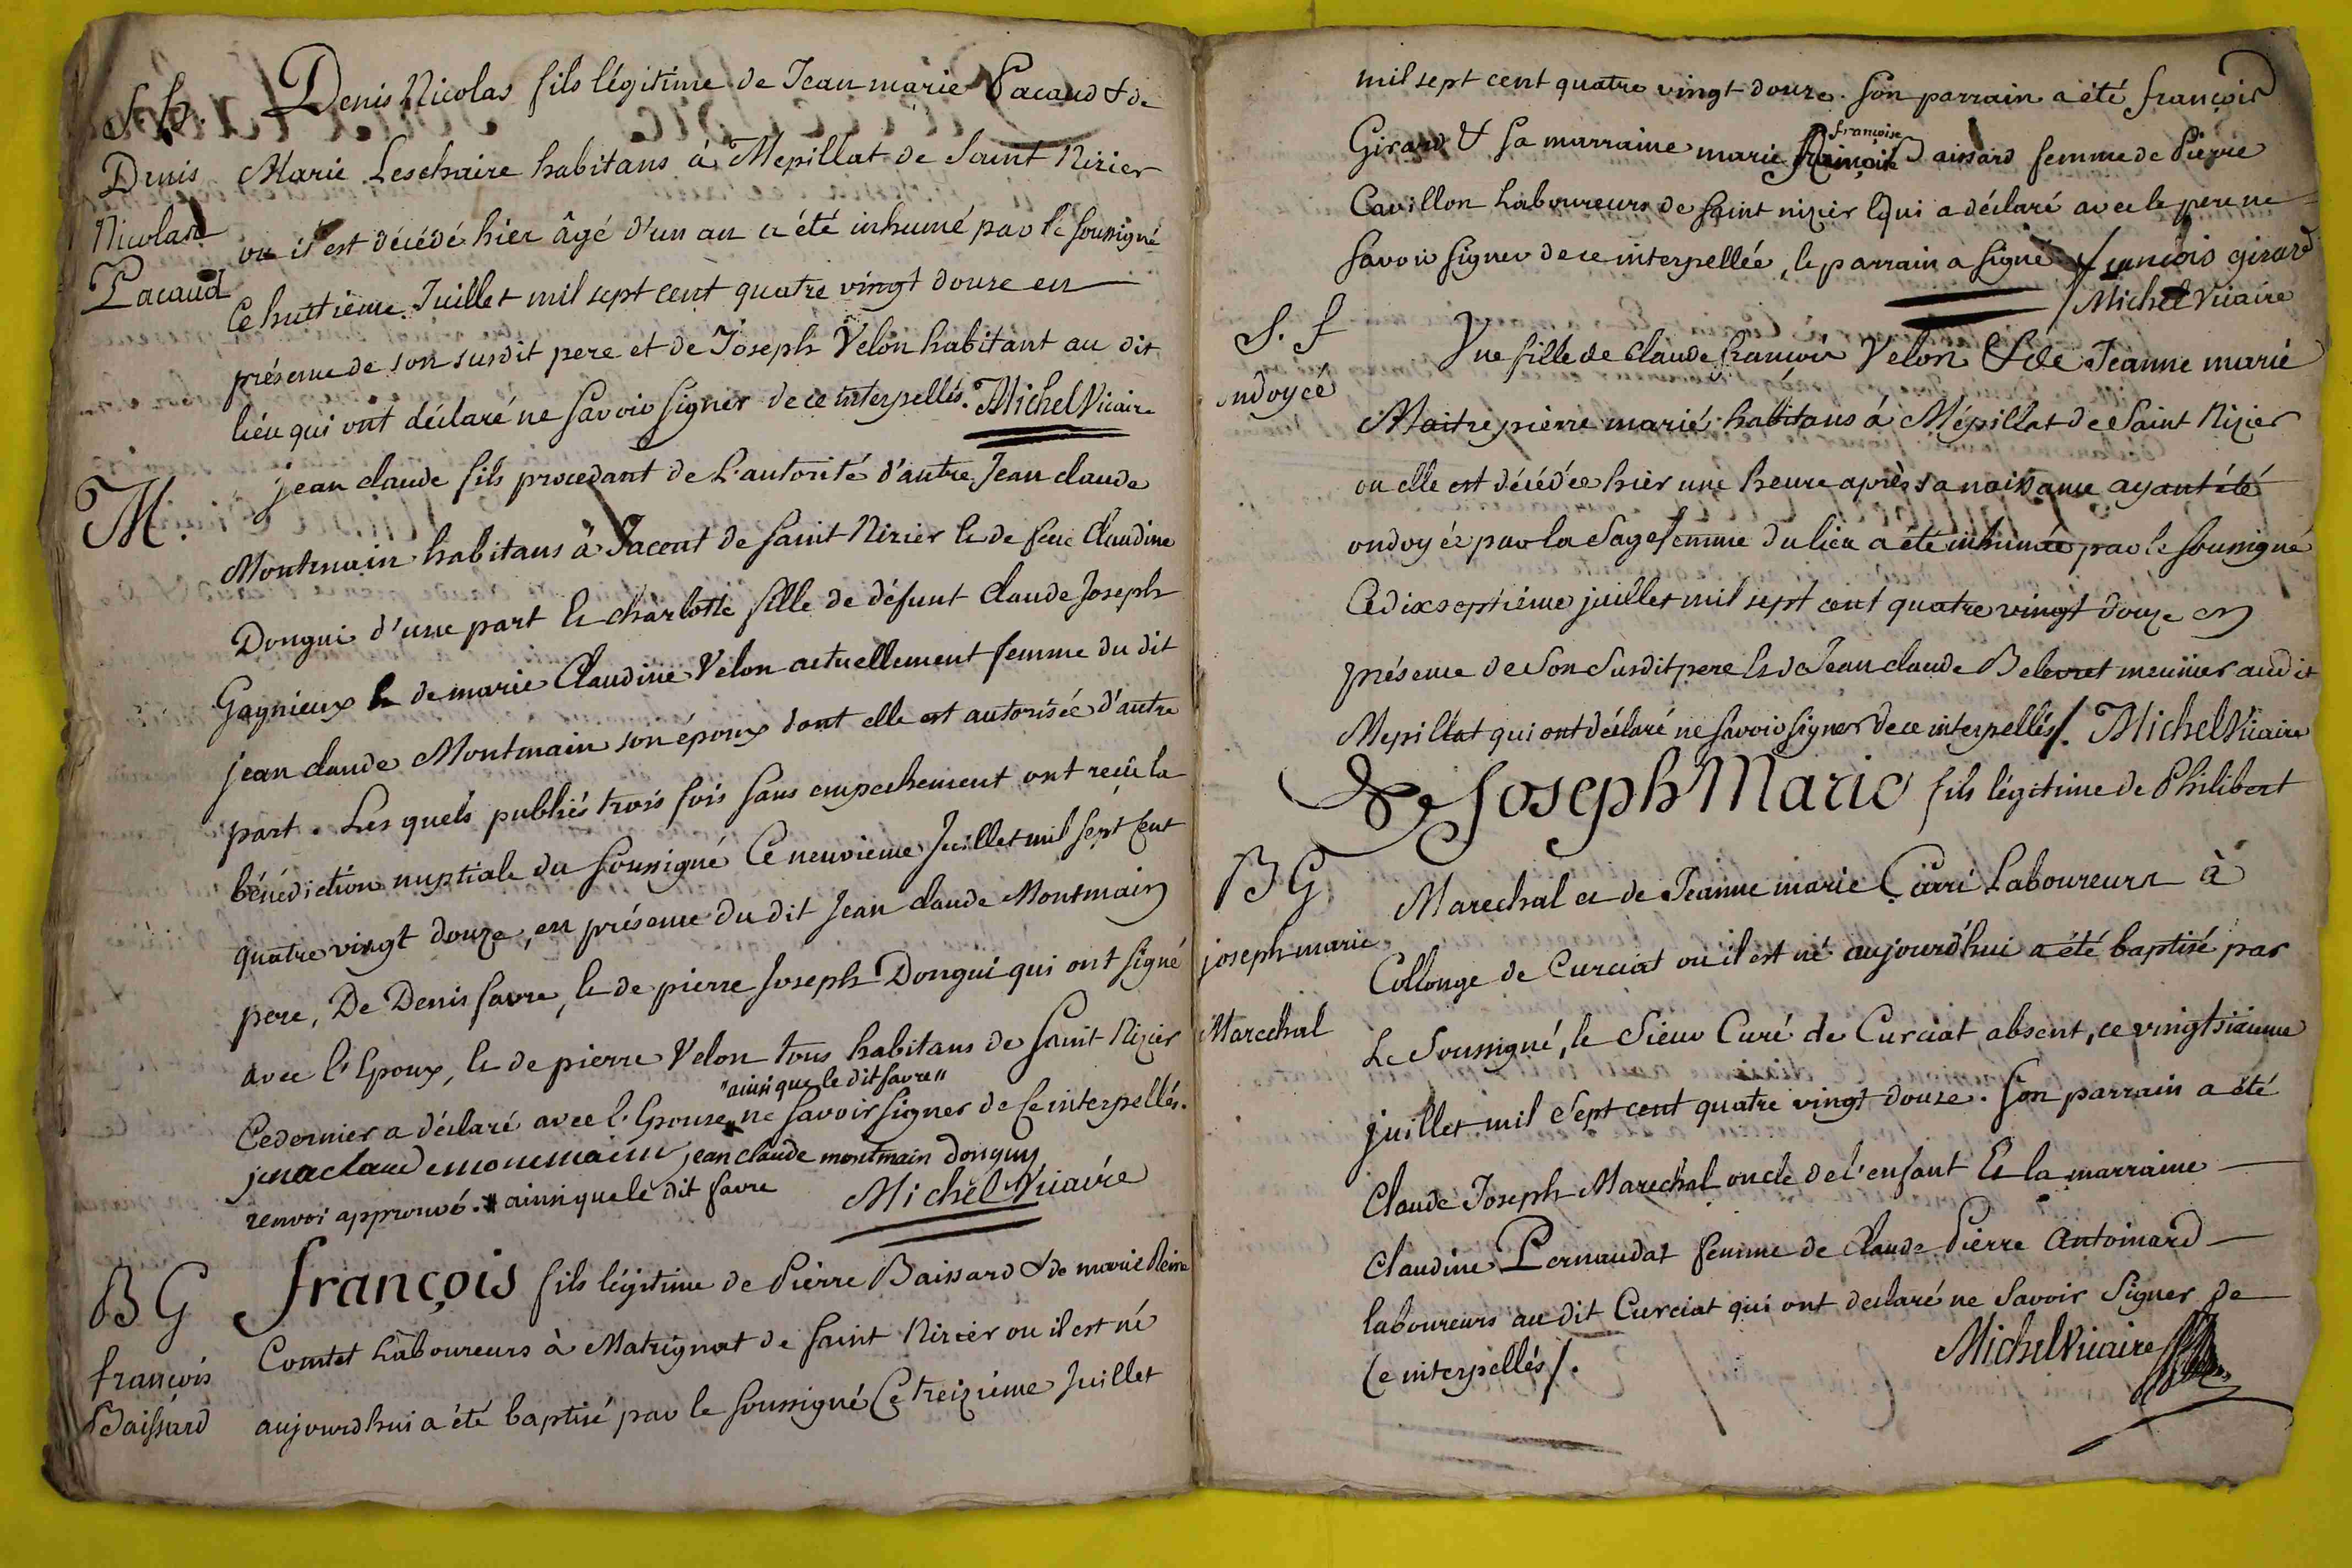 S. h. Denis Nicolas fils légitime de Jean marie Pacaud & de
Denis Marie Leschaire habitans à Mepillat de Saint Nizier
Nicolas ou il est décédé hier âgé d'un an a été inhumé par le soussigné
Pacaud Ce huitieme Juillet mil sept cent quatre vingt douze en
présence de son susdit pere et de Joseph Velon habitant au dit
lieu qui ont déclaré ne savoir signer de ce interpellés. Michel Vicaire
M. jean claude fils procedant de L'autorité d'autre Jean claude
Montmain habitans à de saint Nizier & de feue Claudine
Dongui d'une part & charlotte fille de défunt Claude Joseph
Gagnieux & de marie Claudine Velon actuellement femme du dit
jean claude Montmain son époux dont elle est autorisée d'autre
part. Les quels publiés trois fois sans empechement ont reçu la
bénédiction nuptiale du soussigné Ce neuvieme Juillet mil sept cent
quatre vingt douze, en présence du dit Jean claude Montmain
pere, De Denis favre, & de pierre Joseph Dongui qui ont signé
avec l'Epoux, & de pierre Velon tous habitans de Saint Nizier
"ainsi que le dit favre"
Ce dernier a déclaré avec l'Epouse ne savoir signer de Ce interpellés.
jean claude montmain donguy
renvoi approuvé. ainsi que le dit favre Michel Vicaire
BG françois fils légitime de Pierre Baissard & de marie Reine
françois Comtet Laboureurs à Matrignat de saint Nizier ou il est né
Baissard aujourd'hui a été baptisé par le soussigné Ce treizieme Juillet
mil sept cent quatre vingt douze. son parrain a été françois
françoise
Girard & sa marraine marie Baissard femme de Pierre
Cavillon Laboureurs de saint nizier qui a déclaré avec le pere ne
savoir signer de ce interpellée, le parrain a signé françois girard
Michel Vicaire
S. f Une fille de claude françois Velon & de Jeanne marie
ondoyée Maitrepierre mariés habitans à Mépillat de Saint Nizier
ou elle est décédée hier une heure après sa naissance ayant été
ondoyée par la Sage femme du lieu a été inhumée par le soussigné
Ce dix septieme juillet mil sept cent quatre vingt douze en
présence de Son Susdit pere & de Jean claude Belevret meunier au dit
Mepillat qui ont déclaré ne savoir signer de ce interpellés/. Michel Vicaire
Joseph Marie fils légitime de Philibert
BG Marechal et de Jeanne marie Carré Laboureurs à
joseph marie Collonge de Curciat ou il est né aujourd'hui a été baptisé par
Marechal Le Soussigné, le Sieur Curé de Curciat absent, ce vingt sixieme
juillet mil Sept cent quatre vingt douze. Son parrain a été
Claude Joseph Marechal oncle de l'enfant & la marraine
Claudine Pernaudat femme de Claude Pierre Antoinard
laboureurs au dit Curciat qui ont declaré ne Savoir Signer de
Ce interpellés/. Michel Vicaire